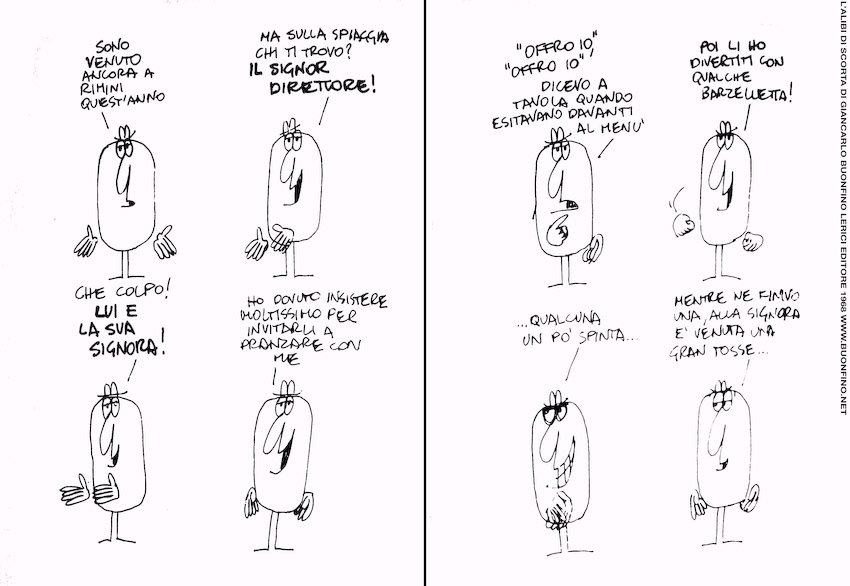 SONO
VENUTO
ANCORA A
RIMINI
QUEST'ANNO
MA SULLA SPIAGGIA
CHI TI TROVO?
IL SIGNOR
DIRETTORE!
CHE COLPO!
LUI E
LA SUA
SIGNORA!
HO DOVUTO INSISTERE
MOLTISSIMO PER
INVITARLI A
PRANZARE CON
ME
"OFFRO IO",
"OFFRO IO",
DICEVO A
TAVOLA QUANDO
ESITAVANO DAVANTI
AL MENU'
POI LI HO
DIVERTITI CON
QUALCHE
BARZELLETTA!
...QUALCUNA
UN PO' SPINTA...
MENTRE NE FINIVO
UNA, ALLA SIGNORA
E' VENUTA UNA
GRAN TOSSE...
L'ALIBI DI SCORTA DI GIANCARLO BUONFINO LERICI EDITORE 1968 WWW.BUONFINO.NET